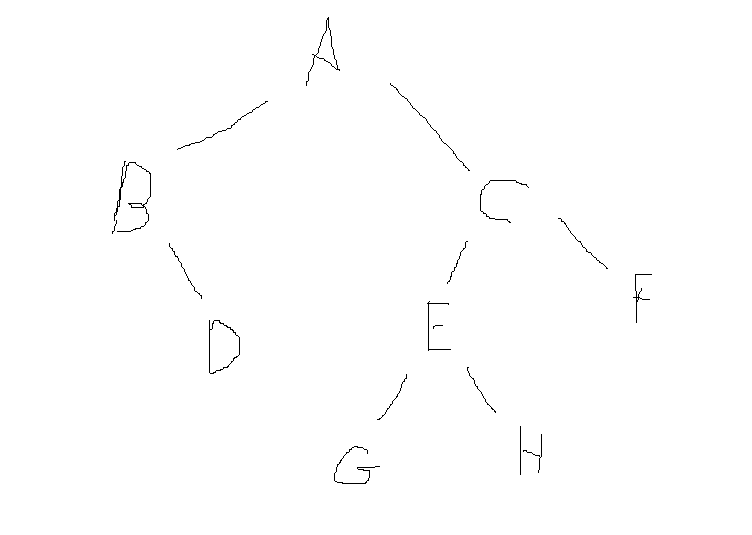 A
B C
D E F
G H